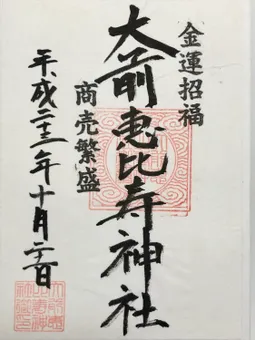 金運招福
大前恵比寿神社
商売繁盛
平成二十三年十月
日